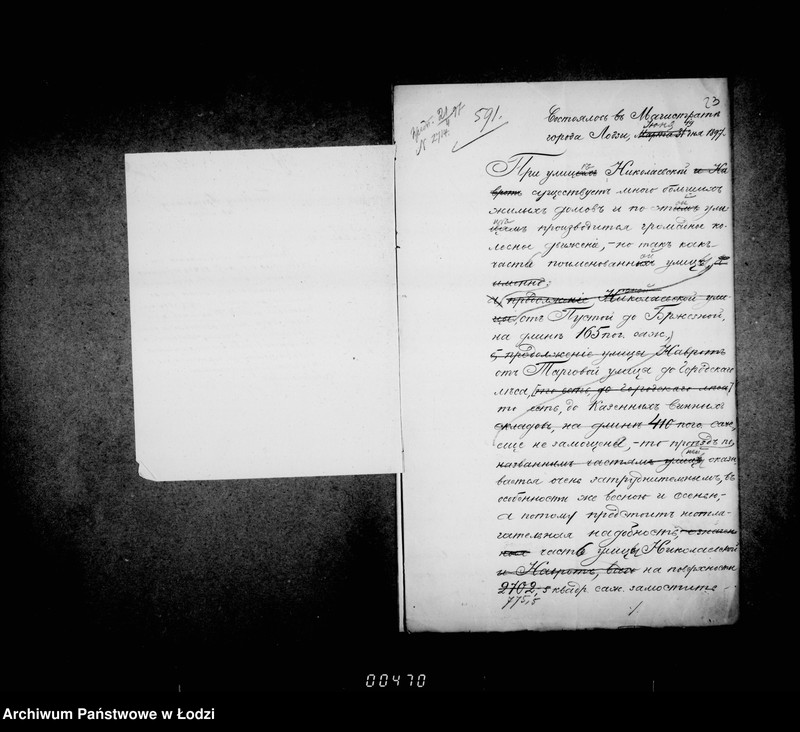 23
591.
Состоялось въ Магистратѣ
города Лодзи, Марта 31 дня 1897
При улицѣ Николаевской и На
вротъ существуетъ много большихъ
жилыхъ домовъ и по этой ули
цѣ производится громадное ко-
лесное движеніе, – но такъ какъ
части поименованной улицы, а
именно:
а, продолженіе Николаевской ули
цы, отъ Пустой до Гржезной,
на длинѣ 165 пог. саж.,
б, продолженіе улицы Навротъ
отъ Тарговой улицы до городскаго
лѣса, то есть, до городскаго лѣса
то есть, до Казенныхъ винныхъ
складовъ, на длинѣ 410 пог. саж.,
еще не замощены, – то проѣздъ по
названнымъ частямъ улицъ оказы
вается очень затруднительнымъ, въ
особенности же весною и осенью, –
а потому предстоитъ неотла-
гательная надобность,
часть улицы Николаевской
и Навротъ, на поверхности
2702,5 квадр. саж. замостить –
775,5
00470
Archiwum Państwowe w Łodzi